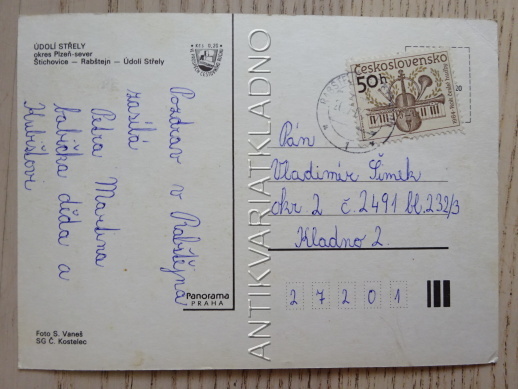 ÚDOLÍ STŘELY
okres Plzeň-sever
Štichovice – Rabštejn – Údolí Střely
Kčs 0,20
Pozdrav v Rabštejna
zasílá
Petra Martina
babička děda a
Kubištovi
Foto S. Vaneš
SG Č. Kostelec
Panorama
PRAHA
ANTIKVARIATKLADNO
Československo
50h
20
Pán
Vladimír Šimek
okr 2 č. 2491 bl. 232/3
Kladno 2.
27201